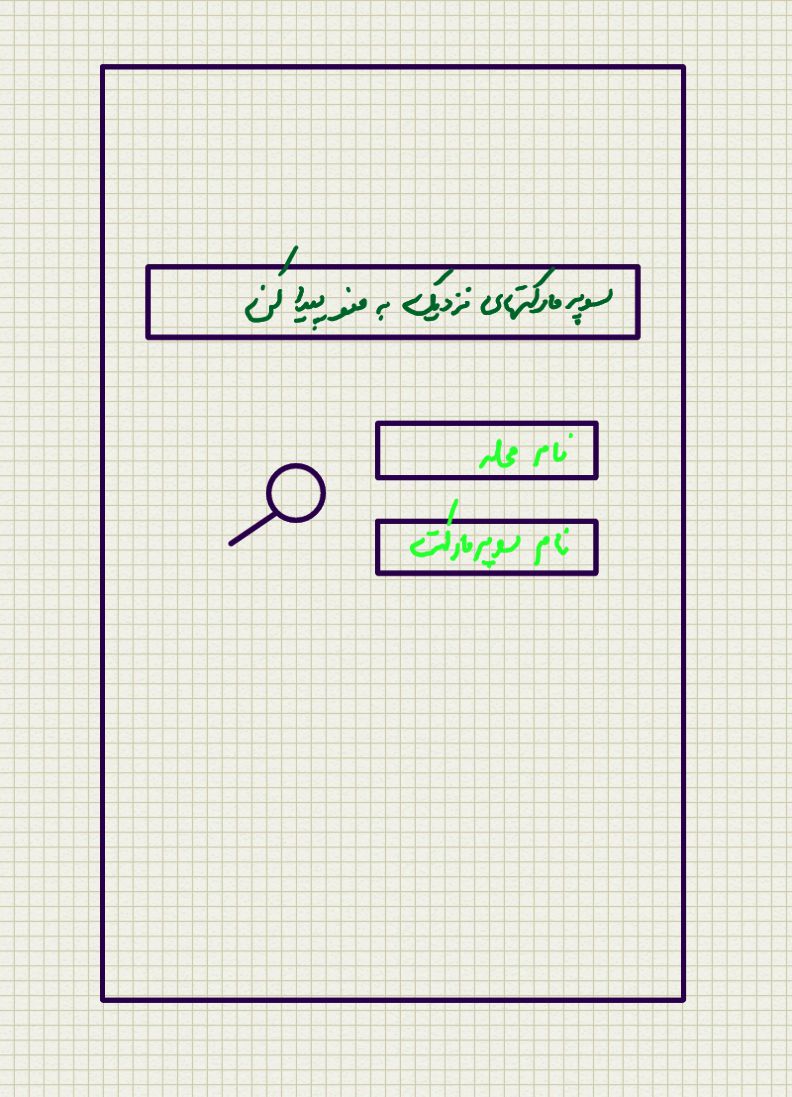 سوپرمارکتهای نزدیک به منو پیدا کن
نام محله
نام سوپرمارکت